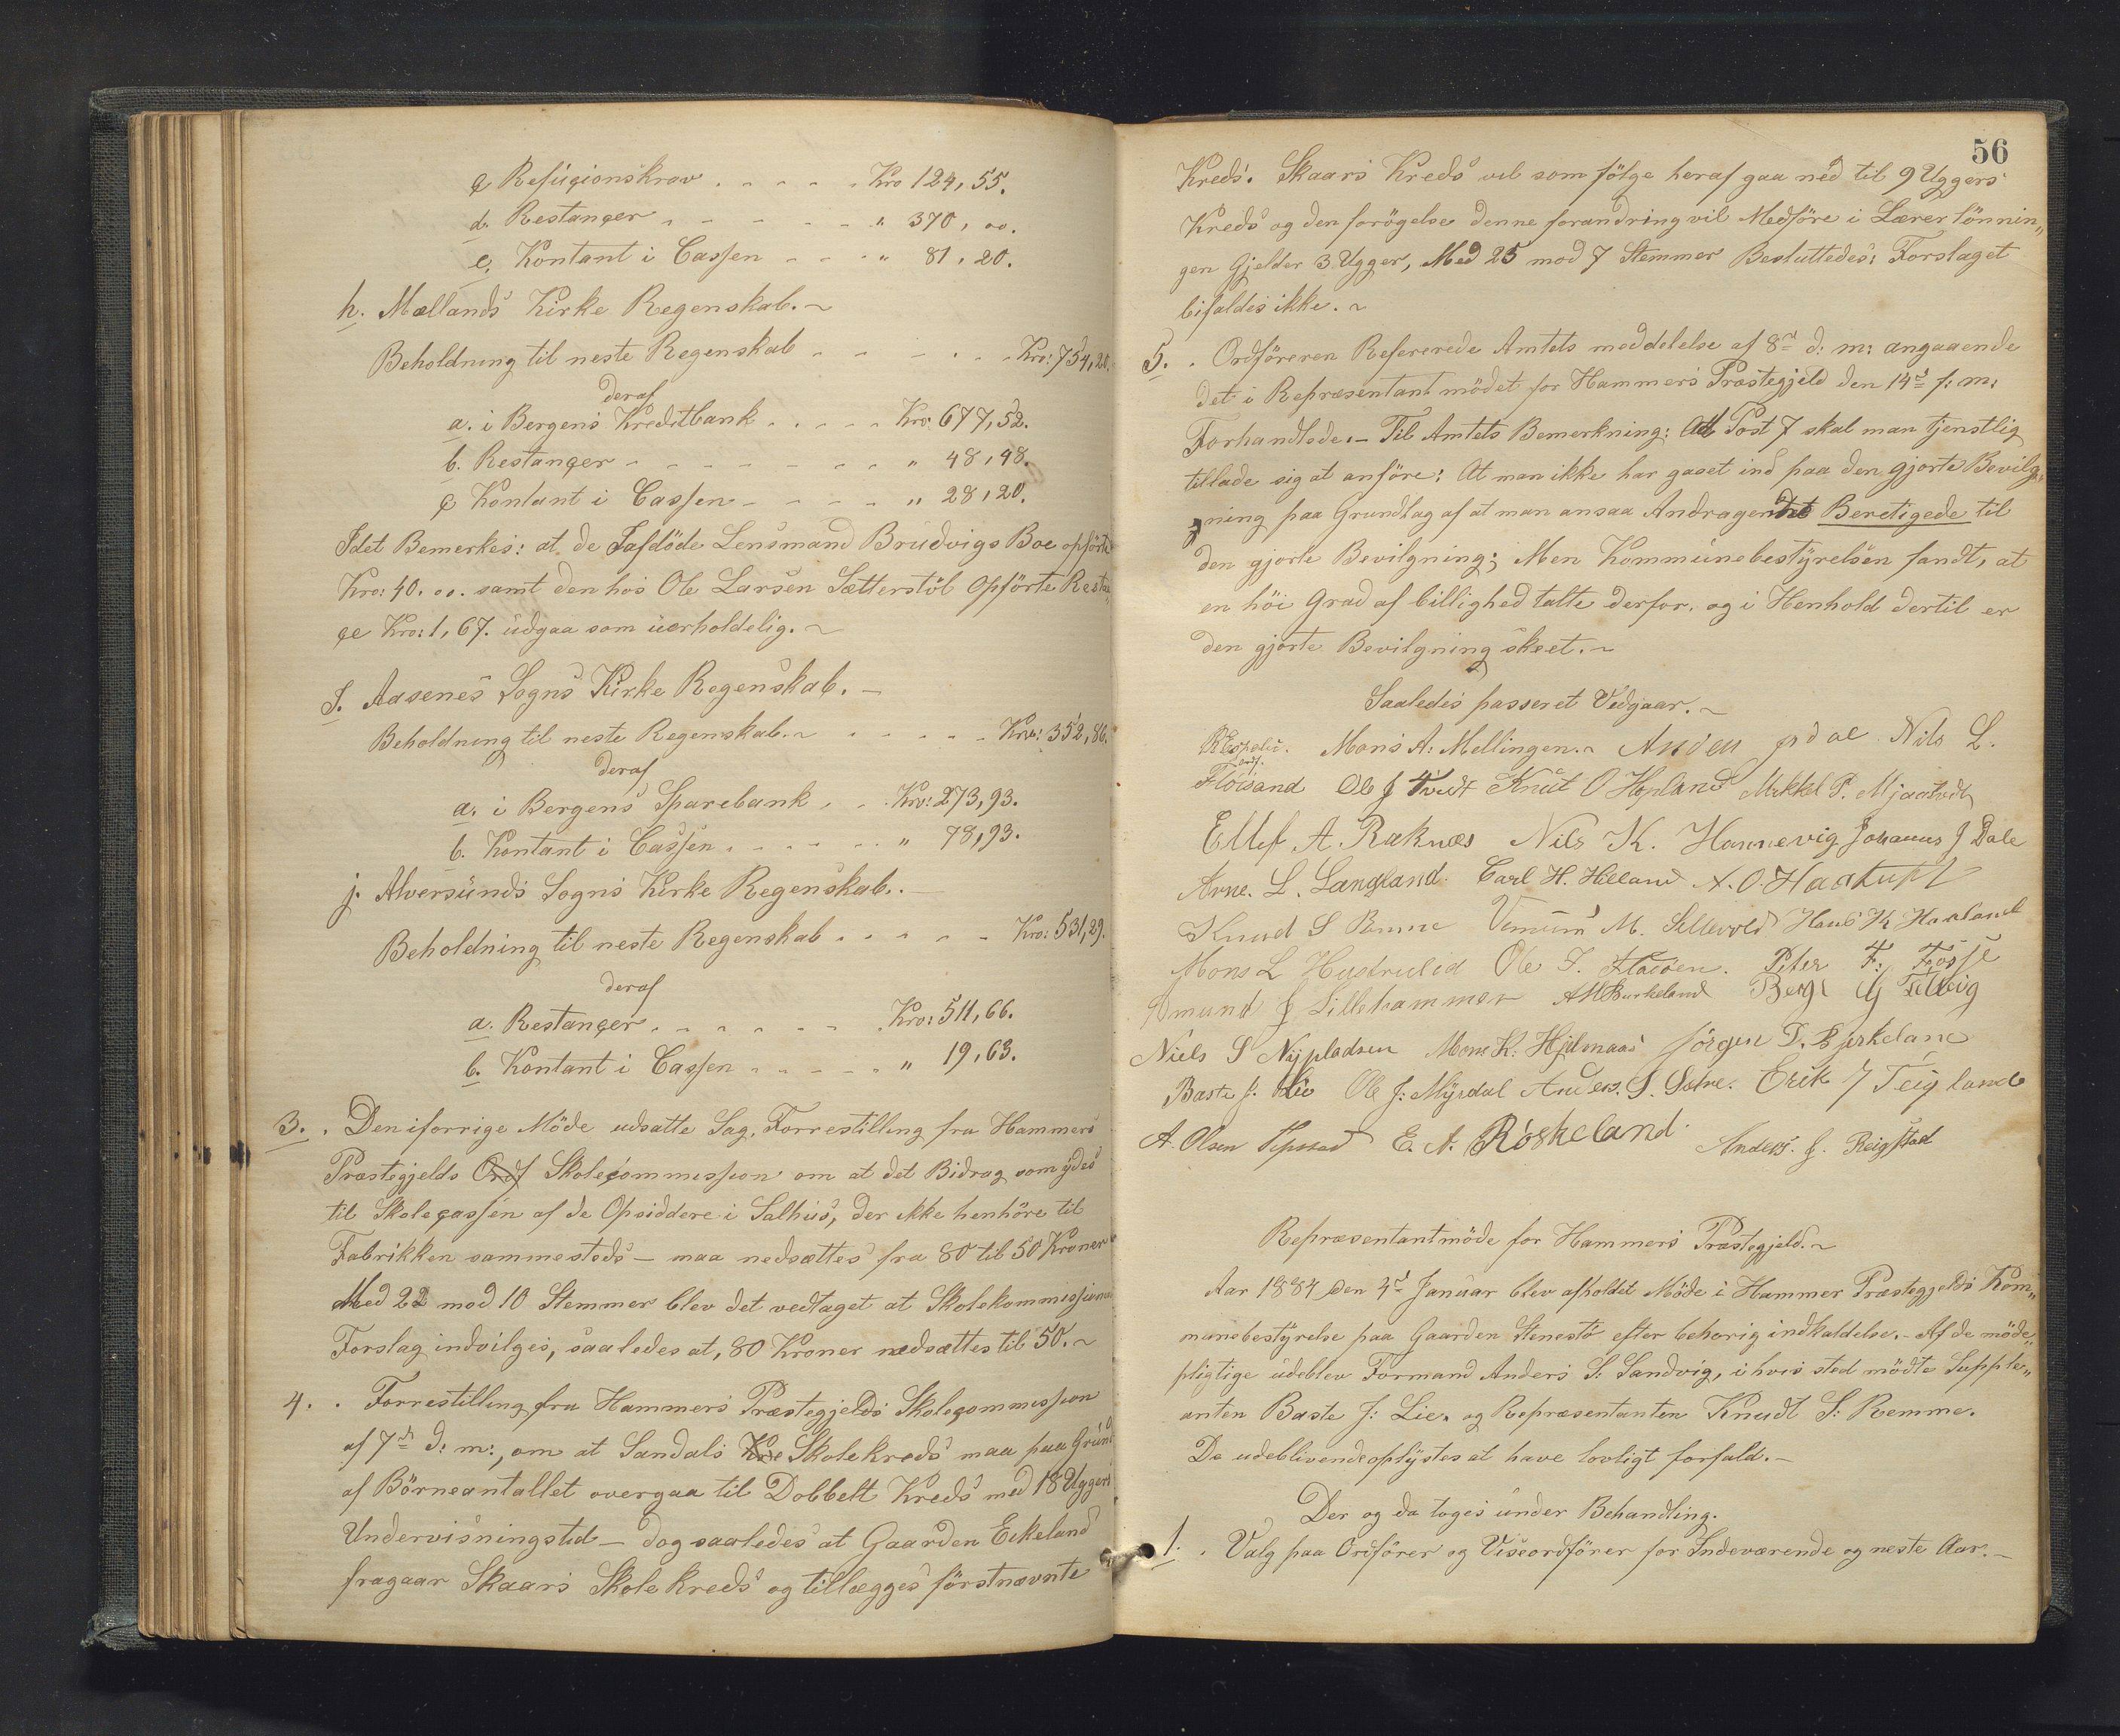 c Refusionskrav . . . . . Kro 124,55.
d. Restancer . . . . . . " 370, 00.
e, Kontant i Cassen . . . " 81,20.
h. Mællands Kirke Regenskab. ~
Beholdning til neste Regenskab . . . . . . Kro: 754,20.
deraf
a. i Bergens Kreditbank . . . . . Kro: 677,52.
b. Restancer . . . . . . . " 48,48.
c Kontant i Cassen . . . . . " 28,20.
Idet Bemerkes: at de I afdöde Lensmand Brudvigs Boe opförte
Kro: 40. 00. samt den hos Ole Larsen Sætterstöl Opförte Restan„
ce Kro: 1,67. udgaa som uerholdelig. ~
I. Aasenes Sogns Kirke Regenskab. —
Beholdning til neste Regenskab. ~ . . . . . Kro: 352,86.
deraf
a. i Bergens Sparebank . . . Kro: 273,93.
b. Kontant i Cassen . . . . . . " 78,93.
j. Alversunds Sogns Kirke Regenskab. . —
Beholdning til neste Regenskab . . . . . Kro: 531,29.
deraf
a. Restancer . . . . . . . Kro: 511,66.
b. Kontant i Cassen . . . . . " 19,63.
3. . Den i forrige Möde udsatte Sag, Forrestilling fra Hammers
Præstegjelds Skolecommission om at det Bidrag som ydes
til Skolecassen af de Opsiddere i Salhus, der ikke henhöre til
Fabrikken sammesteds — maa nedsættes fra 80 til 50 Kroner
Med 22 mod 10 Stemmer blev det vedtaget at Skolekommissionens
Forslag indvilges, saaledes at, 80 Kroner nedsættes til 50. ~
4. . Forrestilling fra Hammers Præstegjelds Skolecommission
af 7de d: m:, om at Sandals Skolekreds maa paa Grund
af Börneantallet overgaa til Dobbelt Kreds med 18 Uggers
Undervisningstid — dog saaledes at Gaarden Eikeland
fragaar Skaars Skole kreds og tillægges förstnævnte
56
Kreds. Skaars Kreds vil som fölge heraf gaa ned til 9 Uggers
Kreds og den forögelse denne forandring vil Medföre i Lærer lönnin„
gen Gjelder 3 Ugger, Med 25 mod 7 Stemmer Besluttedes: Forslaget
bifaldes ikke. ~
5. . Ordföreren Refererede Amtets meddelelse af 8de d: m: angaaende
det i Repræsentant mödet for Hammers Præstegjeld den 14de f: m:
Forhandlede. — Til Amtets Bemerkning: Ad Post 7 skal man tjenstlig
tillade sig at anföre: At man ikke har gaaet ind paa den gjorte Bevilg„
ning paa Grundlag af at man ansaa Andragendet Beretigede til
den gjorte Bevilgning; Men Kommunebestyrelsen fandt, at
en höi Grad af billighed talte derfor, og i Henhold dertil er
den gjorte Bevilgning skeet. ~
Saaledes passeret Vedgaar. ~
Mons A: Mellingen. ~ Nils L.
Floisand Ole J Tvedt Knut O Hopland Mikkel P. Mjaatvedt
Ellef A. Raknæs Nils K. Hannevig Johannes J Dale
Arne. L. Langeland. Carl H. Helland N. O. Haatuft
Knud S Remme M. Sellevold Hans K Haaland
Mons L Hustrulid Ole I. Peter F. Fosse
Amund J Lillehammer A M Burkeland Berge
Niels S Nypladsen Mons K. Hjelmaas Jörgen T. Bjerkeland
Baste J. Lie Ole J: Myrdal Anders. S. Sætre. Erik J Teigland
A. Olsen E. A. Röskeland. Anders. J. Reigstad
Repræsentantmöde for Hammers Præstegjeld. ~
Aar 1884 den 4de Januar blev afholdet Möde i Hammer Præstegjelds Kom„
munebestyrelse paa Gaarden Stenestö efter behörig indkaldelse. — Af de möde„
pligtige udeblev Formand Anders S: Sandvig, i hvis sted mödte Supple„
anten Baste J: Lie. og Repræsentanten Knudt S: Remme.
De udeblivende oplystes at have lovligt forfald. —
Der og da toges under Behandling.
1. . Valg paa Ordförer og Viseordförer for Indeværende og neste Aar. —